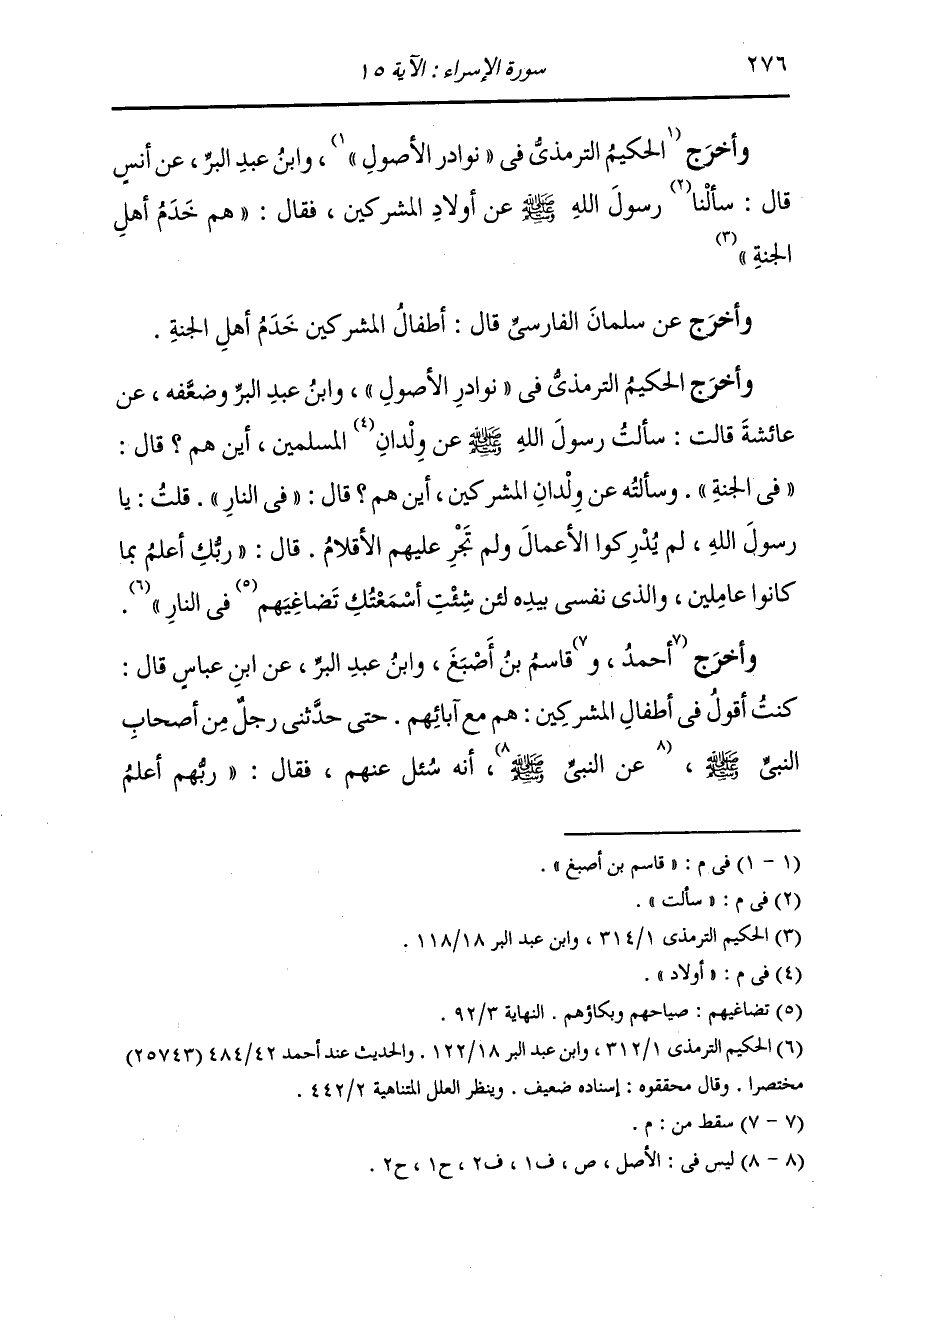 ٢٧٦ سورة الإسراء : الآية ١٥
وأخرَج (١الحكيمُ الترمذىُّ فى « نوادر الأصولِ »١) ، وابنُ عبدِ البرِّ ، عن أنسٍ
قال : سألْنا(٢) رسولَ اللهِ ﷺ عن أولادِ المشركين ، فقال : « هم خَدَمُ أهلِ
الجنةِ »(٣)
وأخرَج عن سلمانَ الفارسىِّ قال : أطفالُ المشركين خَدَمُ أهلِ الجنةِ .
وأخرَج الحكيمُ الترمذىُّ فى « نوادرِ الأصولِ » ، وابنُ عبدِ البرِّ وضعَّفه ، عن
عائشةَ قالت : سألتُ رسولَ اللهِ ﷺ عن وِلْدانِ(٤) المسلمين ، أين هم ؟ قال :
« فى الجنةِ » . وسألتُه عن وِلْدانِ المشركين ، أين هم ؟ قال : « فى النارِ » . قلتُ : يا
رسولَ اللهِ ، لم يُدْرِكوا الأعمالَ ولم تَجْرِ عليهم الأقلامُ . قال : « ربُّكِ أعلمُ بما
كانوا عامِلين ، والذى نفسى بيدِه لئن شِئْتِ أسْمَعْتُكِ تَضاغِيَهم(٥) فى النارِ »(٦) .
وأخرَج (٧أحمدُ ، و٧)قاسمُ بنُ أَصْبَغَ ، وابنُ عبدِ البرِّ ، عن ابنِ عباسٍ قال :
كنتُ أقولُ فى أطفالِ المشركِين : هم مع آبائِهم . حتى حدَّثنى رجلٌ مِن أصحابِ
النبىِّ ﷺ ، (٨عن النبىِّ ﷺ٨) ، أنه سُئل عنهم ، فقال : « ربُّهم أعلمُ
(١ - ١) فى م : « قاسم بن أصبغ » .
(٢) فى م : « سألت » .
(٣) الحكيم الترمذى ٣١٤/١ ، وابن عبد البر ١١٨/١٨ .
(٤) فى م : « أولاد » .
(٥) تضاغيهم : صياحهم وبكاؤهم . النهاية ٩٢/٣ .
(٦) الحكيم الترمذى ٣١٢/١ ، وابن عبد البر ١٢٢/١٨ . والحديث عند أحمد ٤٨٤/٤٢ (٢٥٧٤٣)
مختصرا . وقال محققوه : إسناده ضعيف . وينظر العلل المتناهية ٤٤٢/٢ .
(٧ - ٧) سقط من : م .
(٨ - ٨) ليس فى : الأصل ، ص ، ف١ ، ف٢ ، ح١ ، ح٢ .